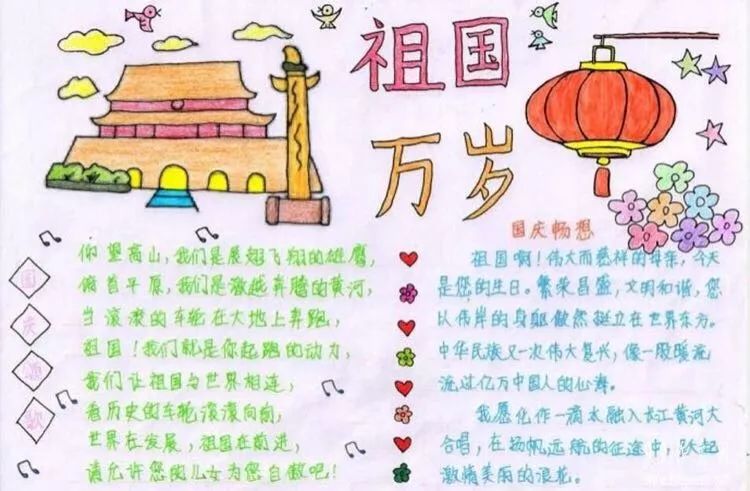 祖国
万岁
国庆颂歌
仰望高山，我们是展翅飞翔的雄鹰，
俯首平原，我们是激越奔腾的黄河，
当滚滚的车轮在大地上奔跑，
祖国！我们就是你起跑的动力，
我们让祖国与世界相连，
看历史的车轮滚滚向前，
世界在发展，祖国在前进，
请允许您的儿女为您自傲吧！
国庆畅想
祖国啊！伟大而慈祥的母亲，今天
是您的生日。繁荣昌盛，文明和谐，您
以伟岸的身躯傲然挺立在世界东方。
中华民族又一次伟大复兴，像一股暖流
流过亿万中国人的心海。
我愿化作一滴水融入长江黄河大
合唱，在扬帆远航的征途中，跃起
激情美丽的浪花。